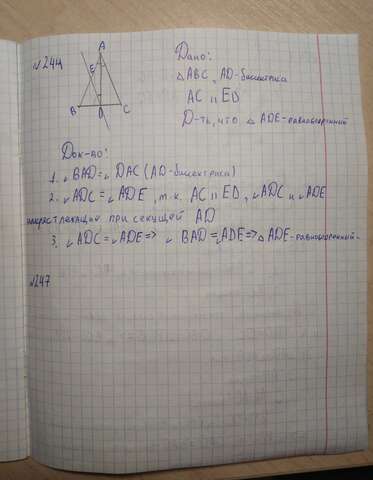 №244
A
E
B
D
C
Дано:
△ABC, AD-биссектриса
AC ıı ED
Д-ть, что △ ADE-равнобедренный
Док-во:
1. ∠BAD=∠DAC (AD-биссектриса)
2. ∠ADC = ∠ADE, т.к. AC ıı ED, ∠ADC и ∠ADE
накрест лежащие при секущей AD
3. ∠ADC = ∠ADE => ∠ BAD = ∠ADE => △ ADE-равнобедренный.
№247